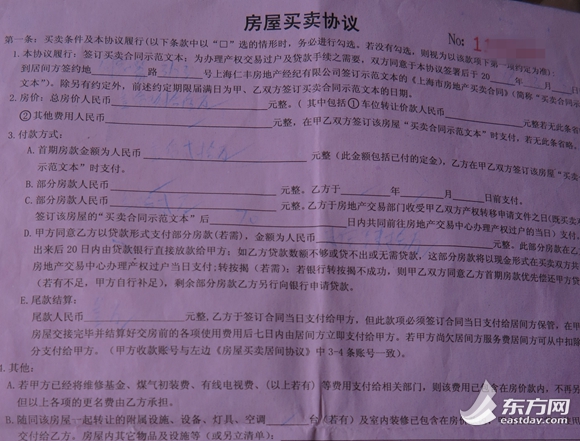 房屋买卖协议
No: 1
第一条:买卖条件及本协议履行(以下条款中以“□”选的情形时,务必进行勾选,若没有勾选,则视为以该款项下第一项约定为准):
1.本协议履行:签订买卖示范文本:为办理产权交易过户及贷款手续之需要,双方同意于本协议签署后于20 年 月 日
到居间方签约地 路 号上海仁丰房地产经纪有限公司签订示范文本的《上海市房地产买卖合同》(简称“买卖合同示
文本”)。除另有约定外,前述约定期限届满日为甲、乙双方签订买卖合同示范文本的日期。
2.房价:总房价人民币 元整,(其中包括①车位转让价款人民币 元整若无此备
②其他费用人民币 元整,在甲乙双方签订该房屋“买卖合同示范文本”时支付,若无此备省略。
3.付款方式:
A.首期房款金额为人民币 元整(此金额包括已付的定金),乙方在甲乙双方签订该房屋“买卖
示范文本”时支付。
B.部分房款人民币 元整,乙方于 年 月 日前支付。
C.部分房款人民币 元整,乙方于房地产交易部门收受甲乙双方产权转移申请文件之日(既买卖
签订该房屋的“买卖合同示范文本”后 日内共同前往房地产交易中心办理产权过户的当日)支付。
D.甲方同意乙方以贷款形式支付部分房款(若需),金额为人民币 元整。此部分房款在乙
出来后20日内由贷款银行直接放款给甲方;如乙方贷款数额不够或贷不出或无需贷款,这部分房款将以现金形式在买卖双方共
房地产交易中心办理产权过户当日支付;转按揭(若需):若银行转按揭不成功,则甲乙双方同意乙方首期房款优先偿还甲方贷
(若有不足,甲方自行补足),剩余部分房款乙方另行向银行申请贷款。
E.尾款结算:
尾款人民币 元整,乙方于签订合同当日支付给甲方,但此款项必须签订合同当日支付给居间方保管。在甲
房屋交接完毕并结算好交房前的各项使用费用后七日内由居间方立即支付给甲方。若甲方尚欠居间方服务费居间方可从中扣除
分支付给甲方。(甲方收款账号与左边《房屋买卖居间协议》中3-4条账号一致)。
其他:
A.若甲方已经将维修基金、煤气初装费、有线电视费、(以上若有)等费用支付给相关部门,则该费用已包含在房价款内,不再另
但以上各项的更名费由乙方承担。
B.随同该房屋一起转让的附属设施、设备、灯具、空调 台(若有)及室内装修已包含在房价
交付给乙方。房屋内其它物品及设施等(或另立清单):
东方网
eastday.com